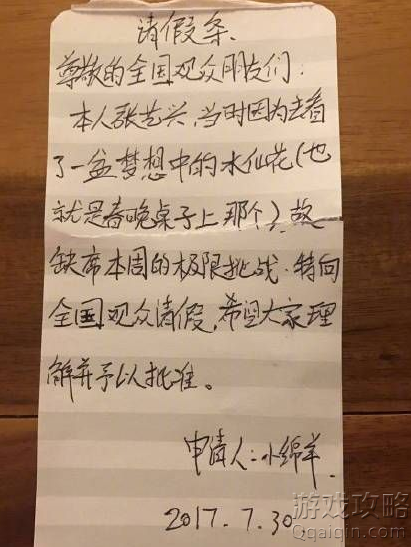 请假条.
尊敬的全国观众朋友们:
本人张艺兴,当时因为去看
了一盆梦想中的水仙花(也
就是春晚桌子上那个).故
缺席本周的极限挑战.特向
全国观众请假,希望大家理
解并予以批准。
申请人:小绵羊.
2017.7.30.
游戏攻略
Qqaiqin.com